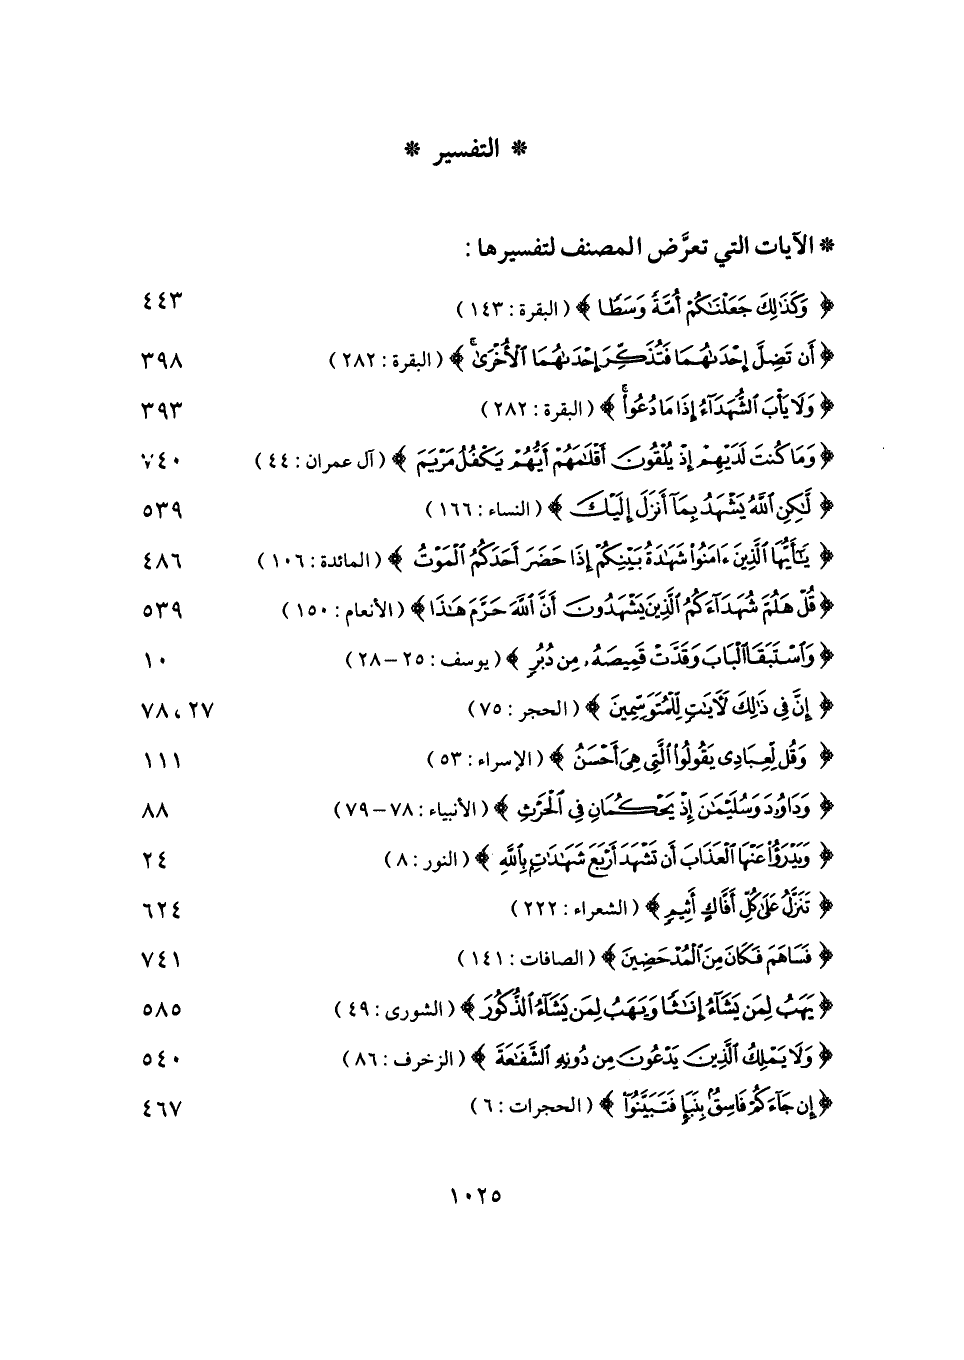 * التفسير *
* الآيات التي تعرَّض المصنف لتفسيرها :
﴿ وَكَذَٰلِكَ جَعَلْنَٰكُمْ أُمَّةً وَسَطًا ﴾ ( البقرة : ١٤٣ ) ٤٤٣
﴿ أَن تَضِلَّ إِحْدَىٰهُمَا فَتُذَكِّرَ إِحْدَىٰهُمَا ٱلْأُخْرَىٰ ۚ ﴾ ( البقرة : ٢٨٢ ) ٣٩٨
﴿ وَلَا يَأْبَ ٱلشُّهَدَآءُ إِذَا مَا دُعُوا۟ ۚ ﴾ ( البقرة : ٢٨٢ ) ٣٩٣
﴿ وَمَا كُنتَ لَدَيْهِمْ إِذْ يُلْقُونَ أَقْلَٰمَهُمْ أَيُّهُمْ يَكْفُلُ مَرْيَمَ ﴾ ( آل عمران : ٤٤ ) ٧٤٠
﴿ لَّٰكِنِ ٱللَّهُ يَشْهَدُ بِمَآ أَنزَلَ إِلَيْكَ ﴾ ( النساء : ١٦٦ ) ٥٣٩
﴿ يَٰٓأَيُّهَا ٱلَّذِينَ ءَامَنُوا۟ شَهَٰدَةُ بَيْنِكُمْ إِذَا حَضَرَ أَحَدَكُمُ ٱلْمَوْتُ ﴾ ( المائدة : ١٠٦ ) ٤٨٦
﴿ قُلْ هَلُمَّ شُهَدَآءَكُمُ ٱلَّذِينَ يَشْهَدُونَ أَنَّ ٱللَّهَ حَرَّمَ هَٰذَا ﴾ ( الأنعام : ١٥٠ ) ٥٣٩
﴿ وَٱسْتَبَقَا ٱلْبَابَ وَقَدَّتْ قَمِيصَهُۥ مِن دُبُرٍ ﴾ ( يوسف : ٢٥ – ٢٨ ) ١٠
﴿ إِنَّ فِى ذَٰلِكَ لَآيَٰتٍ لِّلْمُتَوَسِّمِينَ ﴾ ( الحجر : ٧٥ ) ٢٧ ، ٧٨
﴿ وَقُل لِّعِبَادِى يَقُولُوا۟ ٱلَّتِى هِىَ أَحْسَنُ ﴾ ( الإسراء : ٥٣ ) ١١١
﴿ وَدَاوُۥدَ وَسُلَيْمَٰنَ إِذْ يَحْكُمَانِ فِى ٱلْحَرْثِ ﴾ ( الأنبياء : ٧٨ – ٧٩ ) ٨٨
﴿ وَيَدْرَؤُا۟ عَنْهَا ٱلْعَذَابَ أَن تَشْهَدَ أَرْبَعَ شَهَٰدَٰتٍۭ بِٱللَّهِ ﴾ ( النور : ٨ ) ٢٤
﴿ تَنَزَّلُ عَلَىٰ كُلِّ أَفَّاكٍ أَثِيمٍ ﴾ ( الشعراء : ٢٢٢ ) ٦٢٤
﴿ فَسَاهَمَ فَكَانَ مِنَ ٱلْمُدْحَضِينَ ﴾ ( الصافات : ١٤١ ) ٧٤١
﴿ يَهَبُ لِمَن يَشَآءُ إِنَٰثًا وَيَهَبُ لِمَن يَشَآءُ ٱلذُّكُورَ ﴾ ( الشورى : ٤٩ ) ٥٨٥
﴿ وَلَا يَمْلِكُ ٱلَّذِينَ يَدْعُونَ مِن دُونِهِ ٱلشَّفَٰعَةَ ﴾ ( الزخرف : ٨٦ ) ٥٤٠
﴿ إِن جَآءَكُمْ فَاسِقٌۢ بِنَبَإٍ فَتَبَيَّنُوٓا۟ ﴾ ( الحجرات : ٦ ) ٤٦٧
١٠٢٥